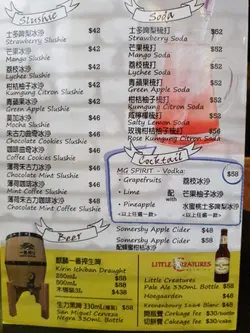 Slushie
士多啤梨冰沙 $42
Strawberry Slushie
芒果冰沙 $42
Mango Slushie
荔枝冰沙 $42
Lychee Slushie
柑桔柚子冰沙 $42
Kumgung Citron Slushie
青蘋果冰沙 $42
Green Apple Slushie
摩卡冰沙 $42
Mocha Slushie
朱古力曲奇冰沙 $42
Chocolate Cookies Slushie
咖啡曲奇冰沙 $42
Coffee Cookies Slushie
薄荷朱古力冰沙 $42
Chocolate Mint Slushie
薄荷咖啡冰沙 $42
Coffee Mint Slushie
薄荷朱古力咖啡冰沙 $42
Chocolate Mint Coffee Slushie
Soda
士多啤梨梳打 $52
Strawberry Soda
芒果梳打 $52
Mango Soda
荔枝梳打 $52
Lychee Soda
青蘋果梳打 $52
Green Apple Soda
柑桔柚子梳打 $52
Kumgung Citron Soda
咸檸檬梳打 $52
Salty Lemon Soda
玫瑰柑桔梳打 $52
Rose Kumgung Citron Soda
Cocktail
MG SPIRIT - Vodka $58
• Grapefruits
• Lime
• Pineapple
<以上任選一款>
配 with
荔枝冰沙
芒果柚子冰沙
水蜜桃士多啤梨冰沙
<以上任選一款>
Somersby Apple Cider $58
Somersby Apple Cider
Beer
麒麟一番搾生啤
Kirin Ichiban Draught
500mL
生力黑啤 330mL(樽裝)
San Miguel Cerveza
Negra 330mL Bottle
LITTLE CREATURES
Little Creatures
Pale Ale 330mL Bottle
Hoegaarden
Kronenbourg 1664 Blanc
開瓶費 Corkage fee $30/bottle
切餅費 Cutting fee $50/cake